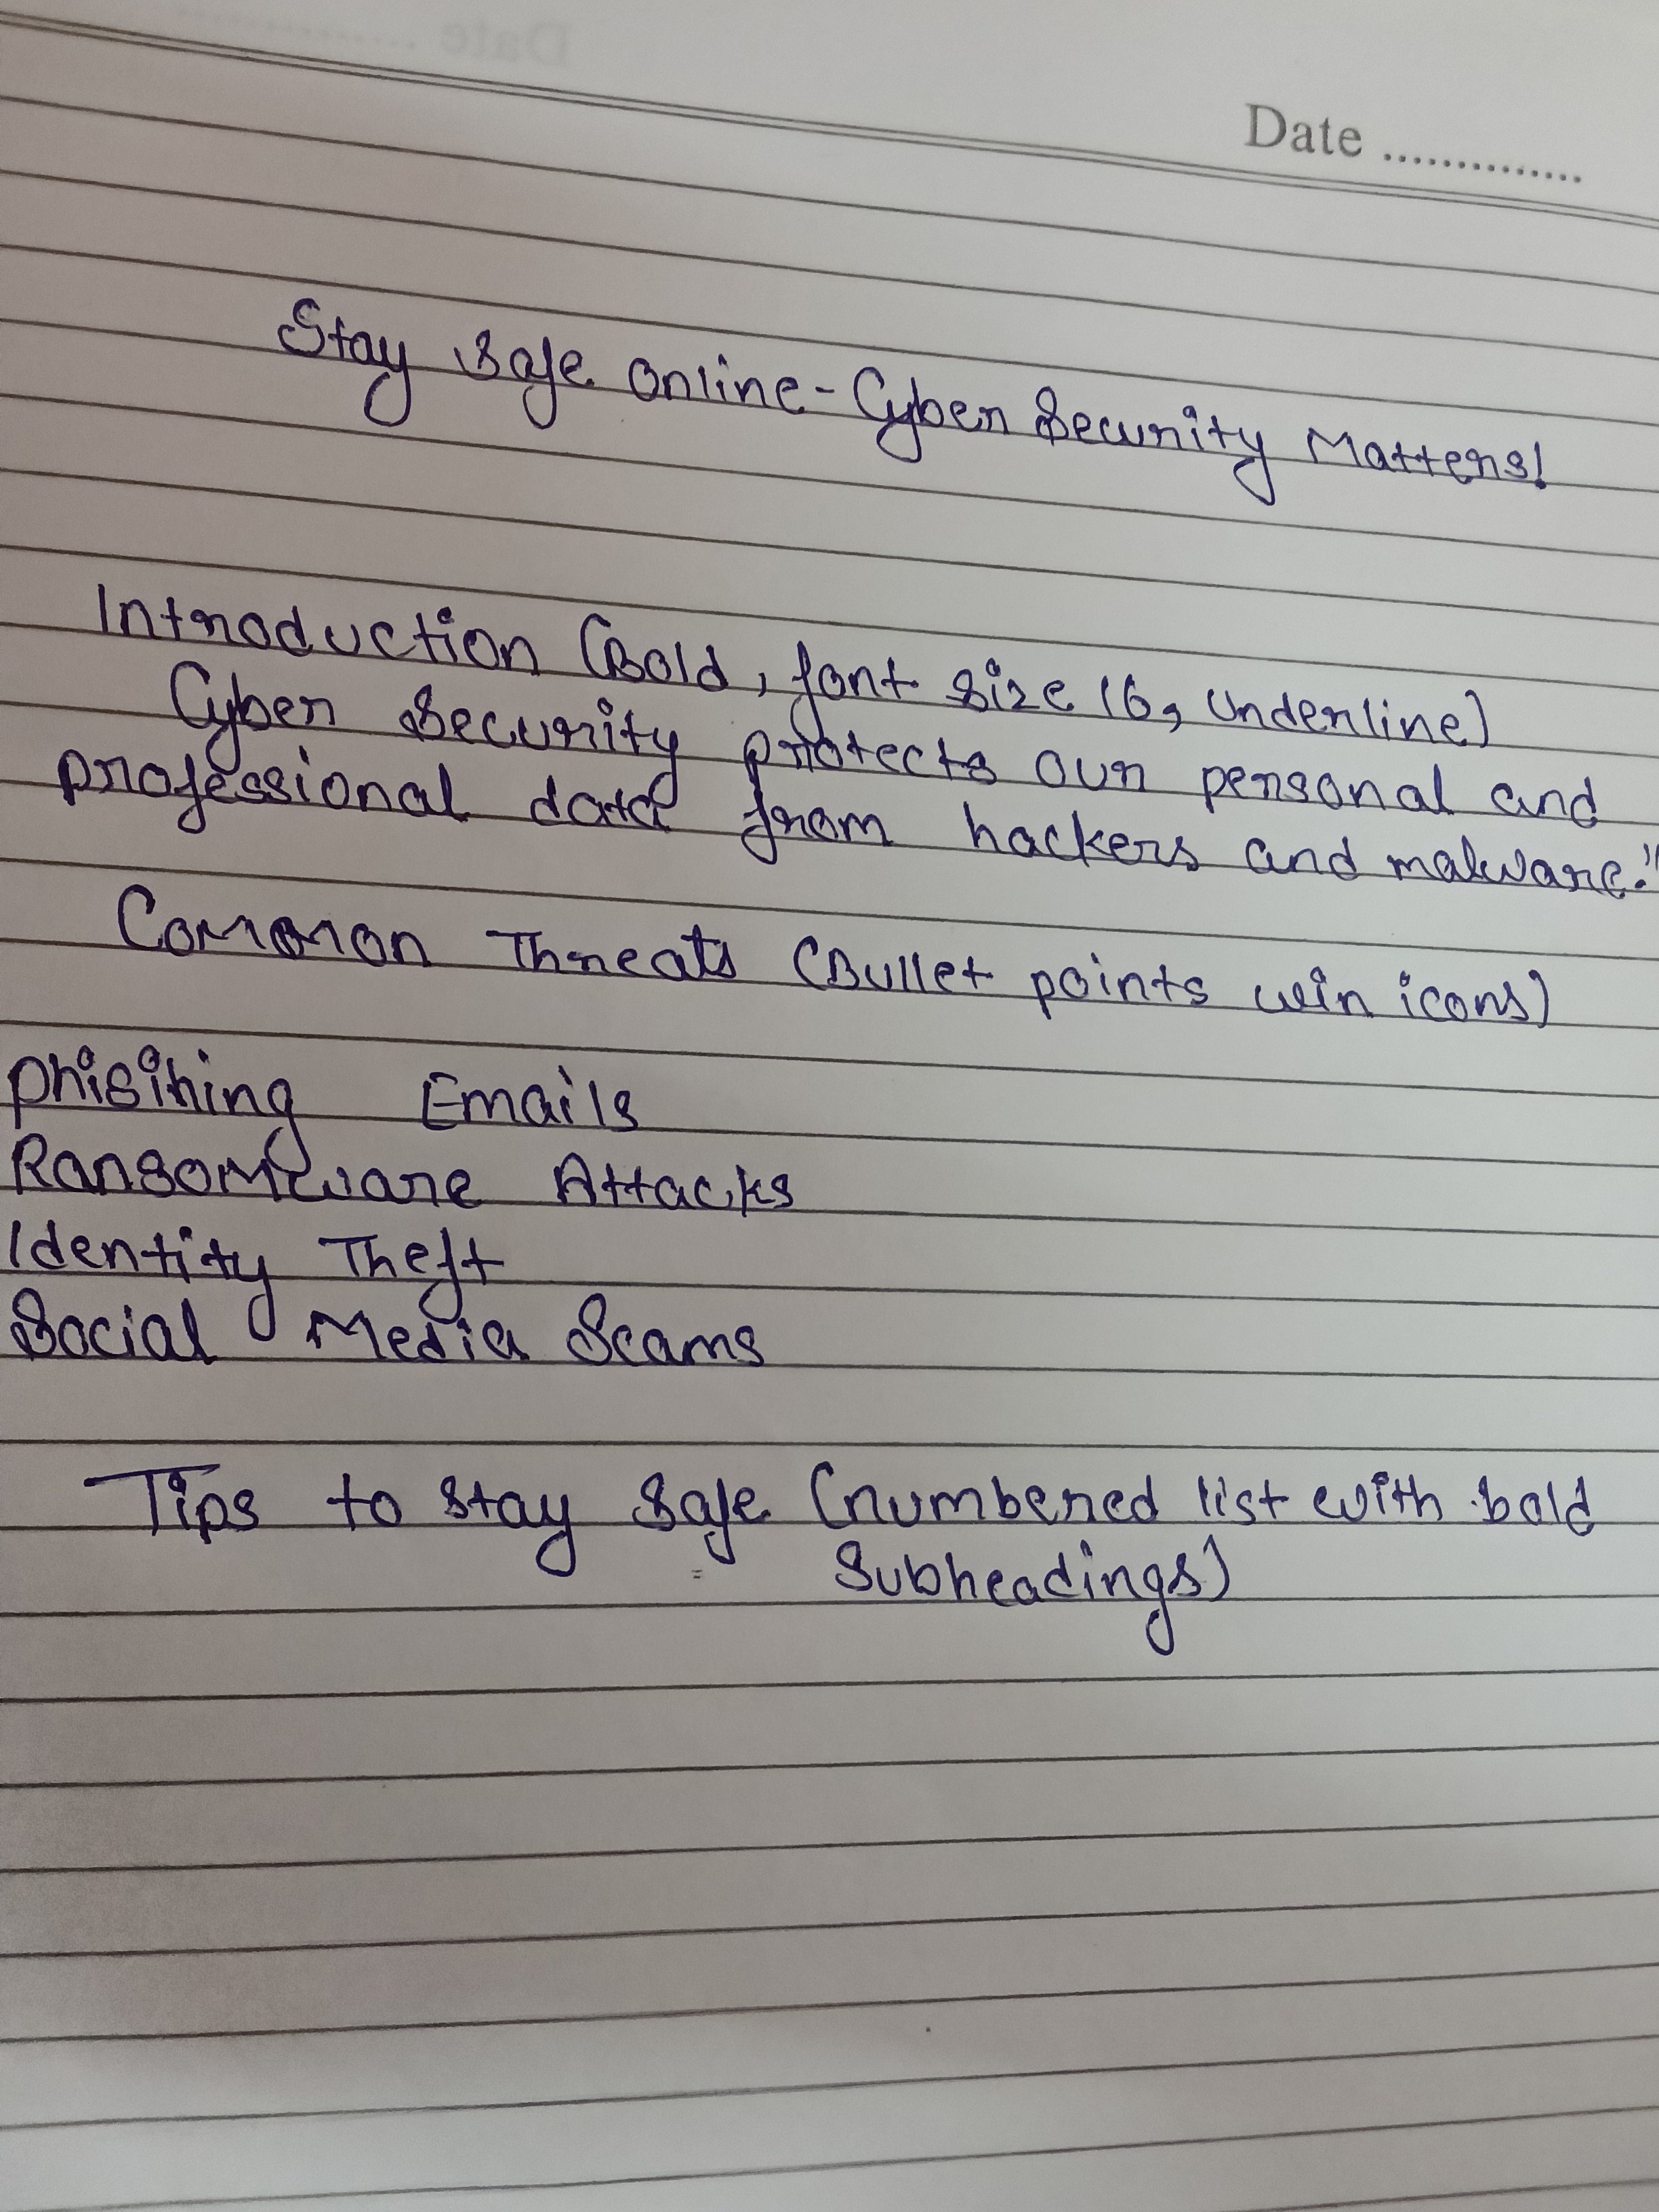 Date ..............
Stay Safe Online-Cyber Security Matters!
Introduction (Bold, font size 16, Underline)
Cyber Security protects our personal and
professional data from hackers and malware."
Common Threats (Bullet points win icons)
Phisihing Emails
Ransomware Attacks
Identity Theft
Social Media Scams
Tips to stay safe (numbered list with bold
Subheadings)